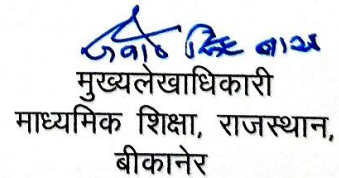 मुख्यलेखाधिकारी
माध्यमिक शिक्षा, राजस्थान,
बीकानेर